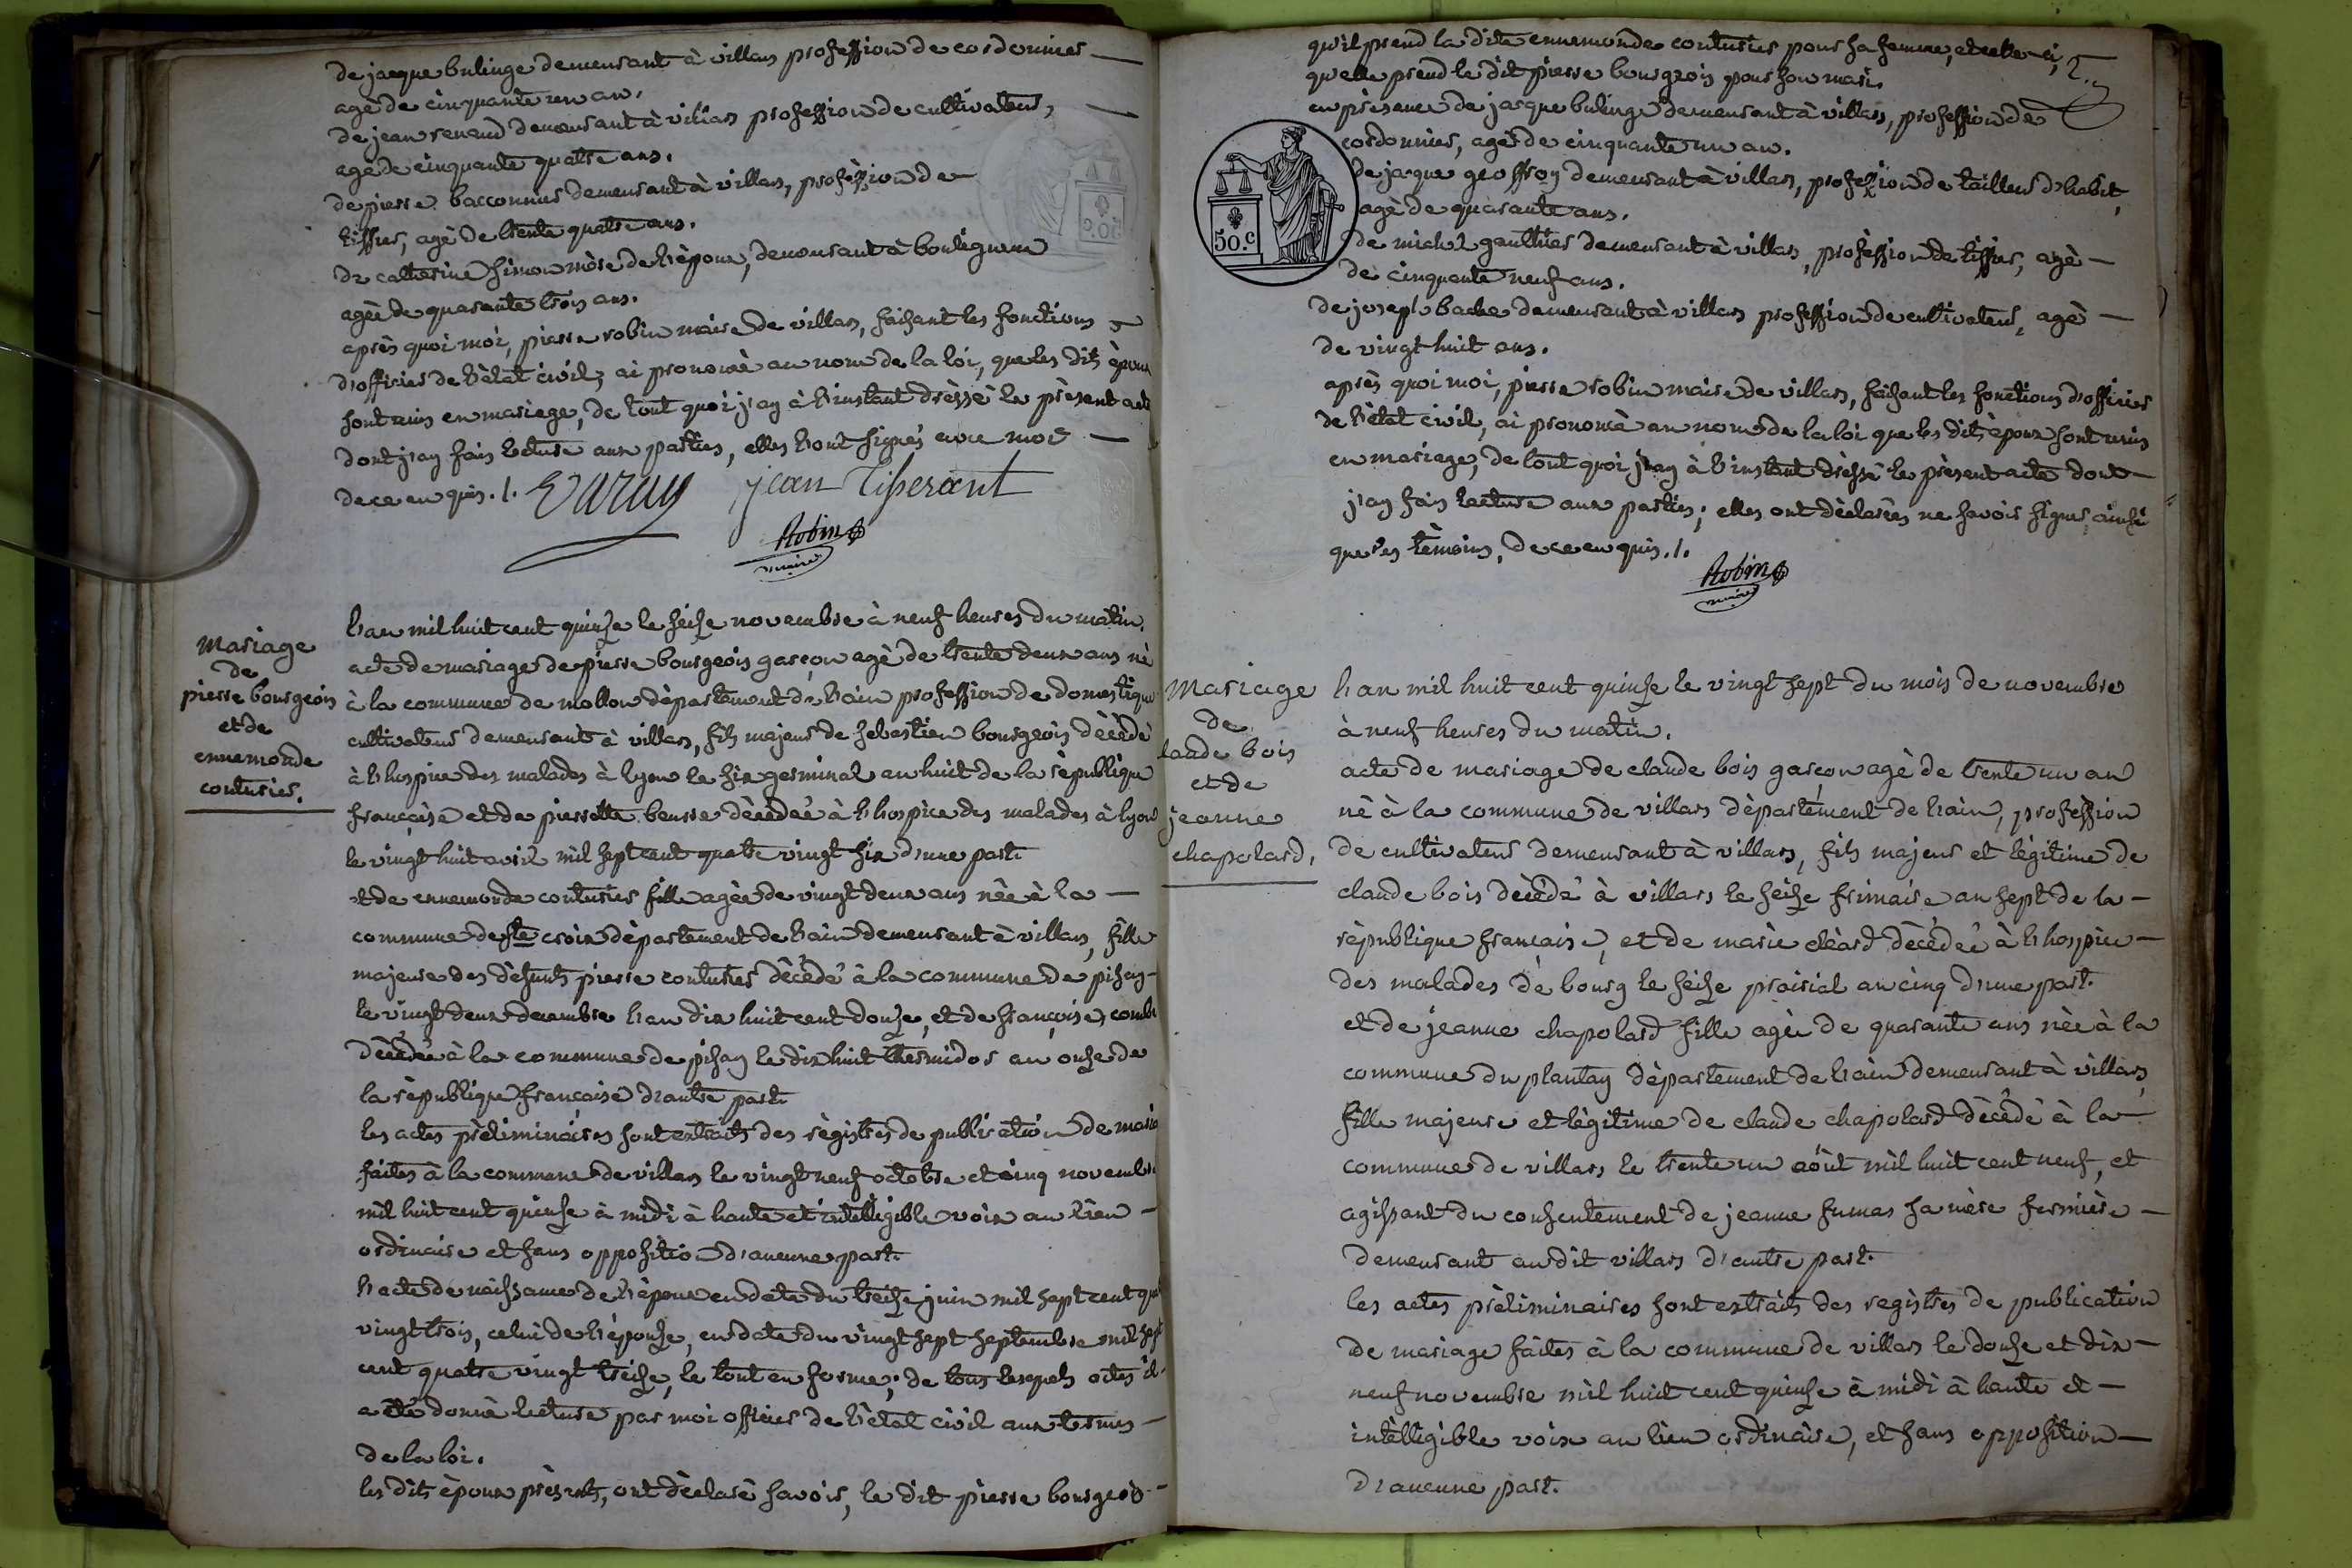 de jacque bulinge demeurant à villars profession de cordonnier
agé de cinquante un an.
de jean renaud demeurant à villars profession de cultivateur,
agé de cinquante quatre ans.
de pierre baconnier demeurant à villars, profession de
tissier, agé de trente quatre ans.
de catterine simon mère de l'époux, demeurant à bouligneux
agèe de quarante trois ans.
après quoi moi, pierre robin maire de villars, faisant les fonctions
d'officier de l'état civil, ai prononcé au nom de la loi, que les dits époux
sont unis en mariage, de tout quoi j'ay à l'instant dréssé le prèsent acte
dont j'ay fais lecture aux parties, elles l'ont signés avec moi
de ce enquis ./.
jean Tisserant
Robin
maire
Mariage
de
pierre bourgeois
et de
ennemonde
couturier.
l'an mil huit cent quinze le seize novembre à neuf heures du matin.
acte de mariage de pierre bourgeois garçon agè de trente deux ans nè
à la commune de mollon dèpartement de l'ain profession de domestique
cultivateur demeurant à villars, fils majeur de sebastien bourgeois dècèdé
à l'hospice des malades à lyon le six germinal an huit de la rèpublique
françèise et de pierrette beurre dècèdée à l'hospice des malades à lyon
le vingt huit avril mil sept cent quatre vingt six d'une part.
et de ennemonde couturier fille agèe de vingt deux ans nèe à la
commune de ste croix dèpartement de l'ain demeurant à villars, fille
majeure des dèfunts pierre couturier dècèdé à la commune de pisay
le vingt deux decembre l'an dix huit cent douze, et de françoise
dècèdée à la commune de pisay le dix huit thermidor an onze de
la rèpublique françaisé d'autre part.
les actes prèliminaires sont extraits des règistres de publication de maria
faites à la commune de villars le vingt neuf octobre et cinq novembre
mil huit cent quinze à midi à haute et intelligible voix au lieu
ordinaire et sans opposition d'aucune part.
l'acte de naissance de l'époux en date du treize juin mil sept cent qua
vingt trois, celui de l'épouse, en date du vingt sept septembre mil sept
cent quatre vingt treize, le tout en forme; de tous lesquels actes il
a étè donnè lecture par moi officier de l'ètat civil aux termes
de la loi.
les dits époux prèsents, ont dèclarè savoir, le dit pierre bourgeois
qu'il prend la dite ennemonde couturier pour sa femme, et celle-ci,
qu'elle prend le dit pierre bourgeois pour son mari.
en prèsence de jacque bulinge demeurant à villars, profession de
cordonnier, agè de cinquante un an.
de jacque geoffroy demeurant à villars, profession de tailleur d'habit,
agè de quarante ans.
de michel gauthier demeurant à villars, profèssion de tissier, agè
de cinquante neuf ans.
de joseph bache demeurant à villars profession de cultivateur, agè
de vingt huit ans.
après quoi moi, pierre robin maire de villars, faisant les fonctions d'officier
de l'ètat civil, ai prononcè au nom de la loi que les dits époux sont unis
en mariage, de tout quoi j'ay à l'instant drèssé le prèsent acte dont
j'ay fais lecture aux parties; elles ont dèclarèes ne savoir signer, ainsi
que les tèmoins, de ce enquis ./.
Robin
maire
50.c
Mariage
de
laude bois
et de
jeanne
chapolard.
l'an mil huit cent quinze le vingt sept du mois de novembre
à neuf heures du matin.
acte de mariage de claude bois garçon agè de trente un an
nè à la commune de villars dèpartement de l'ain, profession
de cultivateur demeurant à villars, fils majeur et lègitime de
claude bois dècèdé à villars le seize frimaire an sept de la
rèpublique française, et de marie clèard dècèdeé à l'hospice
des malades de bourg le seize prairial an cinq d'une part.
et de jeanne chapolard fille agèe de quarante ans nèe à la
commune du plantay dèpartement de l'ain demeurant à villars
fille majeure et lègitime de claude chapolard dècèdé à la
commune de villars le trente un août mil huit cent neuf, et
agissant du consentement de jeanne humas sa mère fermière
demeurant au dit villars d'autre part.
les actes prèliminaires sont extraits des registres de publication
de mariage faites à la commune de villars le douze et dix
neuf novembre mil huit cent quinze à midi à haute et
intèlligible voix au lieu ordinaire, et sans opposition
d'aucune part.